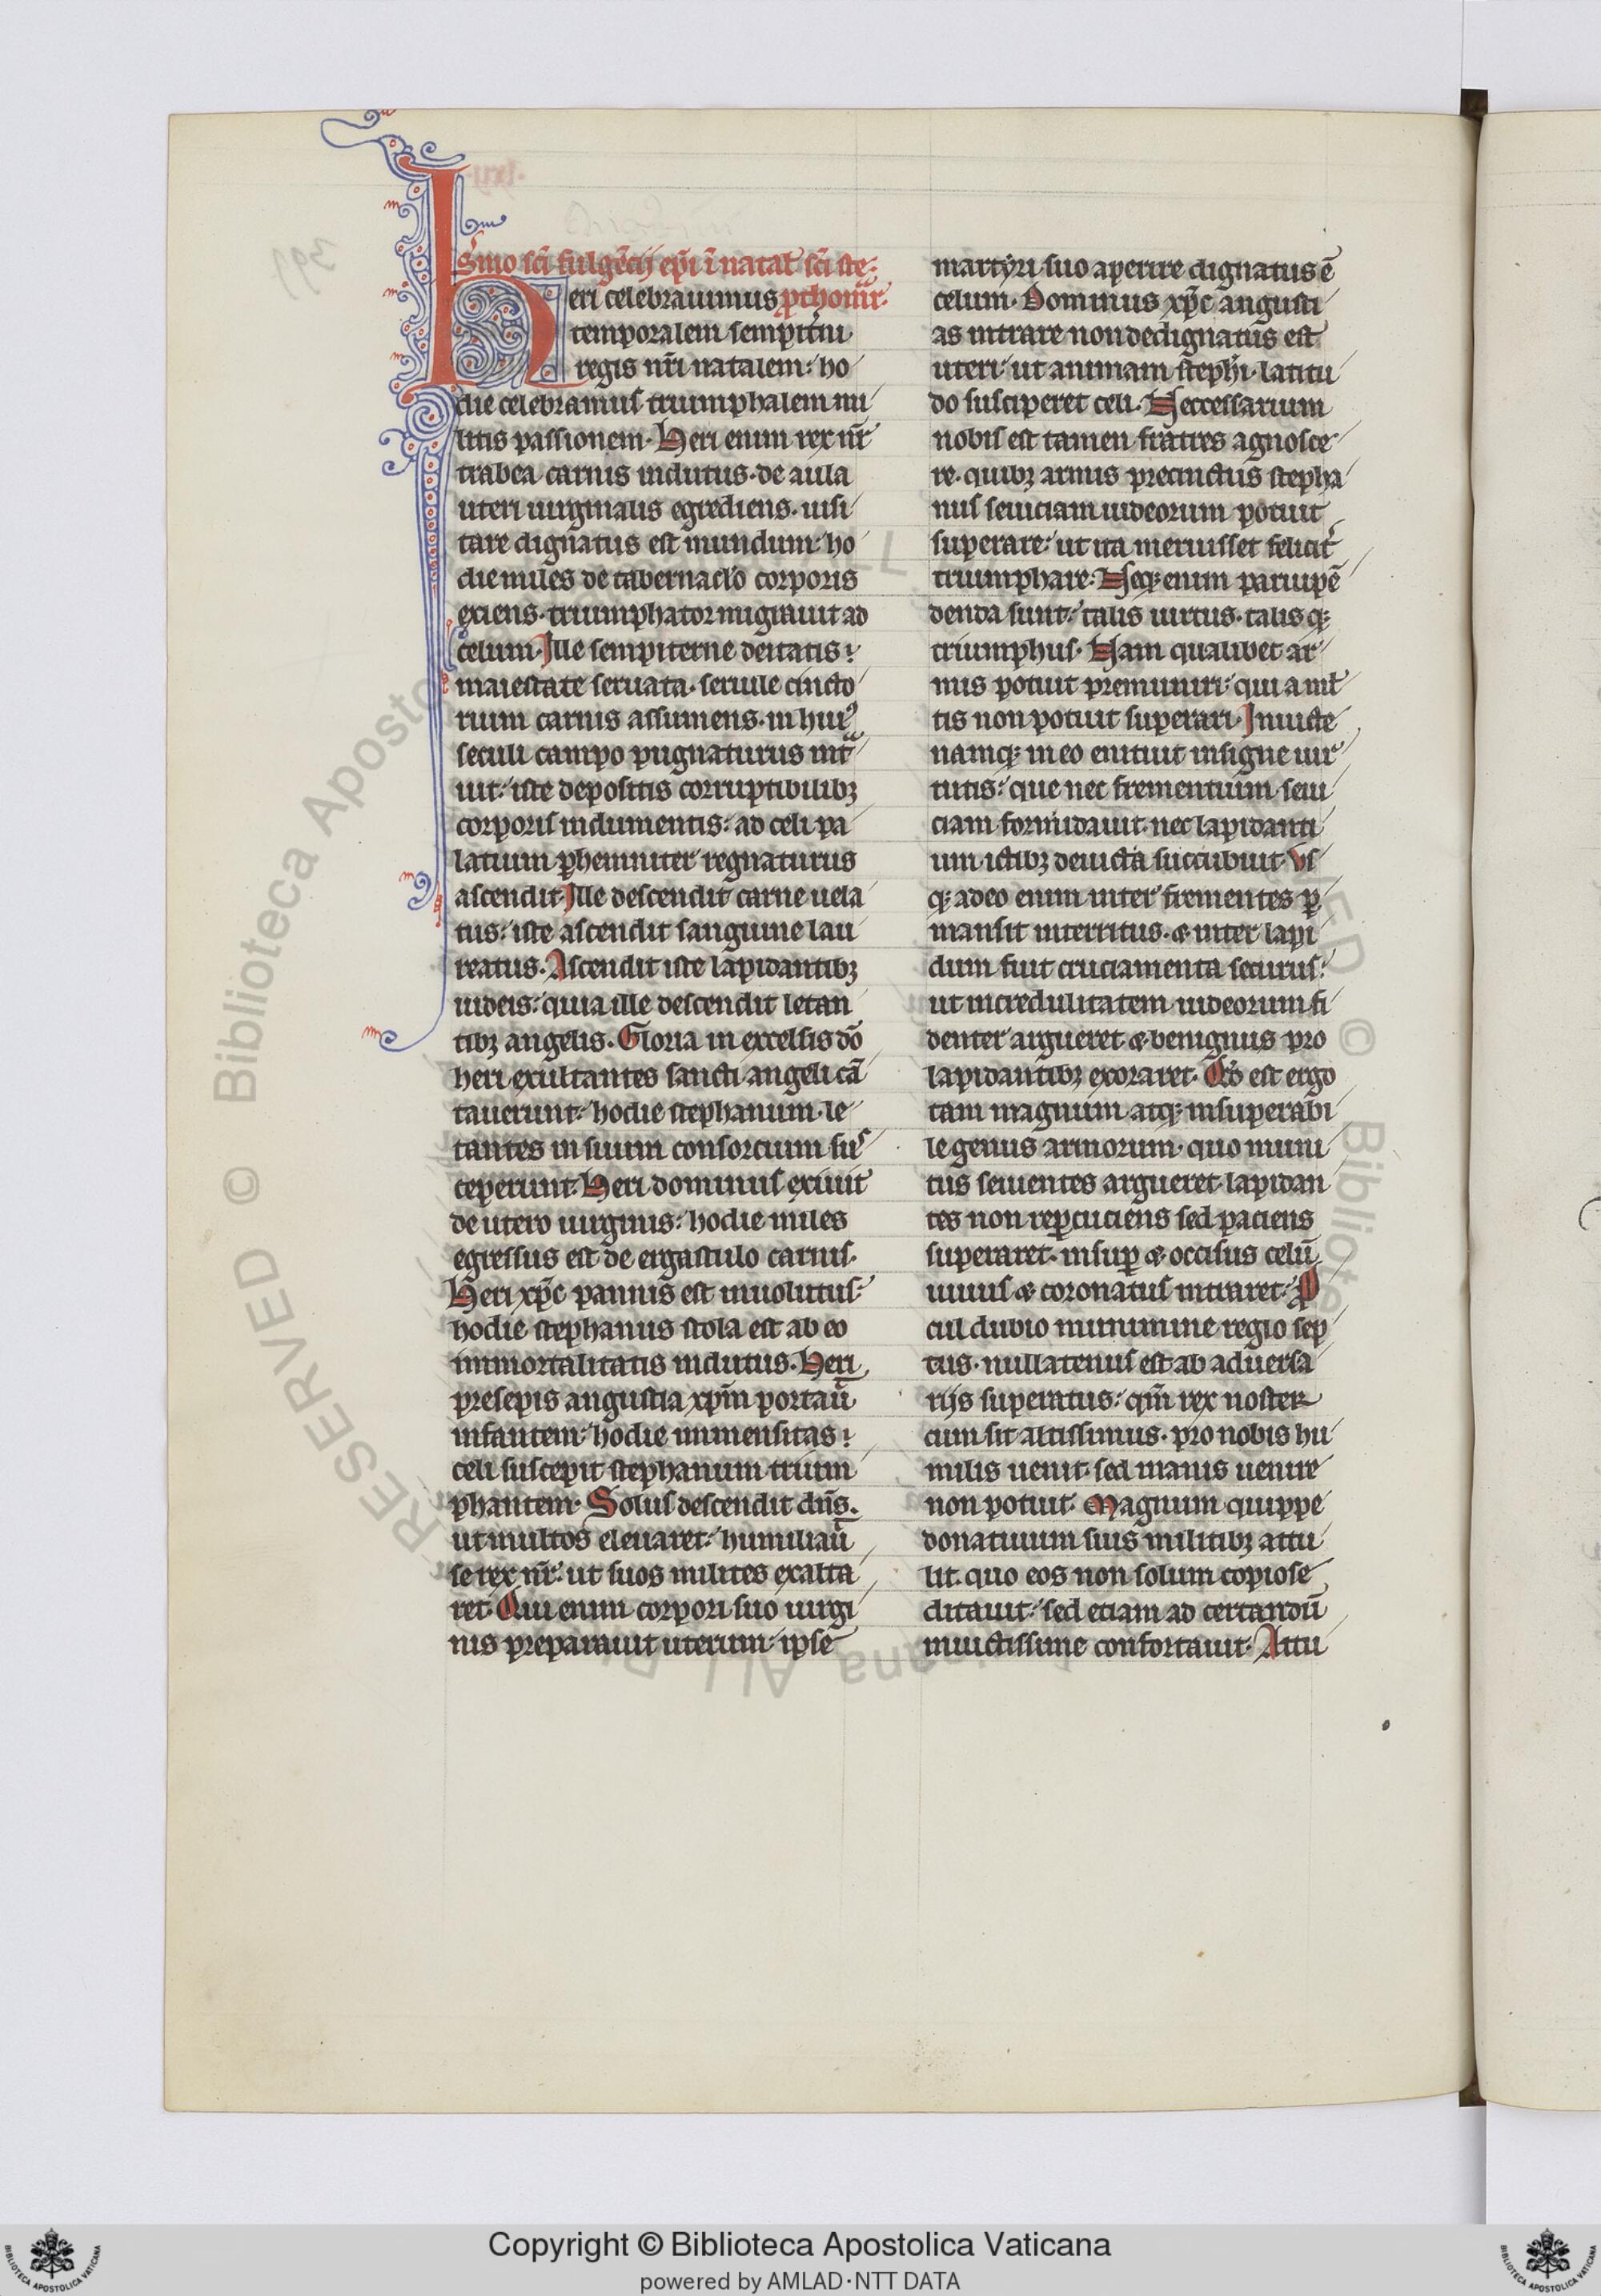 Sm̄o sc̄i fulgēcij ep̄i ī natal̄ sc̄i ste
Heri celebrauimus ꝓthom̄r.
temporalem sempit̄ni
regis nr̄i natalem: ho
die celebramus triumphalem mi
litis passionem. Heri enim rex nr̄
trabea carnis indutus. de aula
uteri uirginalis egrediens. uisi
tare dignatus est mundum: ho
die miles de tabernac̄lo corporis
exiens. triumphator migrauit ad
celum. Ille sempiterne deitatis
maiestate seruata. seruile cincto
rium carnis assumens. in huiꝰ
seculi campo pugnaturus int̄ͣ
uit: iste depositis corruptibilibꝫ
corporis indumentis: ad celi pa
latium ꝑhenniter regnaturus
ascendit. Ille descendit carne uela
tus: iste ascendit sanguine lau
reatus. Ascendit iste lapidantibꝫ
iudeis: quia ille descendit letan
tibꝫ angelis. Gloria in excelsis dō
heri exultantes sancti angeli cā
tauerunt: hodie stephanum. le
tantes in suum consorcium sus
ceperunt. Heri dominus exiuit
de utero uirginis: hodie miles
egressus est de ergastulo carnis.
Heri xp̄c pannis est inuolutus:
hodie stephanus stola est ab eo
immortalitatis indutus. Heri
presepis angustia xp̄m portau̅
infantem: hodie immensitas
celi suscepit stephanum trium
phantem. Solus descendit dn̄s.
ut multos eleuaret: humiliau̅
se rex nr̄: ut suos milites exalta
ret. Qui enim corpori suo uirgi
nis preparauit uterum: ipse
martyri suo aperire dignatus ē
celum. Dominus xp̄c angusti
as intrare non dedignatus est
uteri: ut animam steph̄i. latitu
do susciperet celi. Neccessarium
nobis est tamen fratres agnosce
re. quibꝫ armis precinctus stepha
nus seuiciam iudeorum potuit
superare: ut ita meruisset felicit̄
triumphare. Neqꝫ enim paruipē
denda sunt: talis uirtus. talis qꝫ
triumphus. Nam qualibet ar
mis potuit premuniri: qui a ml̄
tis non potuit superari. Inuicte
namqꝫ in eo enituit insigne uir
tutis: que nec frementium seui
ciam formidauit. nec lapidanti
um ictibꝫ deuicta succubuit. Us
qꝫ adeo enim inter frementes ꝑ
mansit interritus. ⁊ inter lapi
dum fuit cruciamenta securus:
ut incredulitatem iudeorum fi
denter argueret ⁊ benignus pro
lapidantibꝫ exoraret. Qd̄ est ergo
tam magnum atqꝫ insuperabi
le genus armorum. quo muni
tus seuientes argueret. lapidan
tes non reꝑcuciens sed paciens
superaret. insuꝑ ⁊ occisus celū
uiuus ⁊ coronatus intraret: Ꝓ
cul dubio munimine regio sep
tus. nullatenus est ab aduersa
rijs superatus: qm̄ rex noster
cum sit altissimus. pro nobis hu
milis uenit. sed inanis uenire
non potuit. Magnum quippe
donatiuum suis militibꝫ attu
lit. quo eos non solum copiose
ditauit: sed etiam ad certandū
inuictissime confortauit. Attu
© Biblioteca Apostolica Vaticana ALL RIGHTS RESERVED
Copyright © Biblioteca Apostolica Vaticana
powered by AMLAD·NTT DATA
BIBLIOTECA APOSTOLICA VATICANA
BIBLIOTECA APOSTOLICA VATICANA